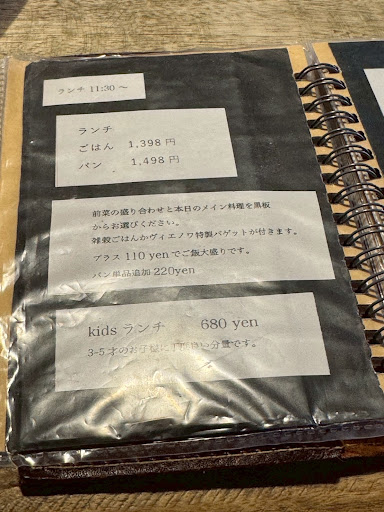 ランチ 11:30 ～
ランチ
ごはん 1,398 円
パン 1,498 円
前菜の盛り合わせと本日のメイン料理を黒板
からお選びください。
雑穀ごはんかヴィエノワ特製バゲットが付きます。
プラス 110 yen でご飯大盛りです。
パン単品追加 220yen
kids ランチ 680 yen
3-5才のお子様に い分量です。